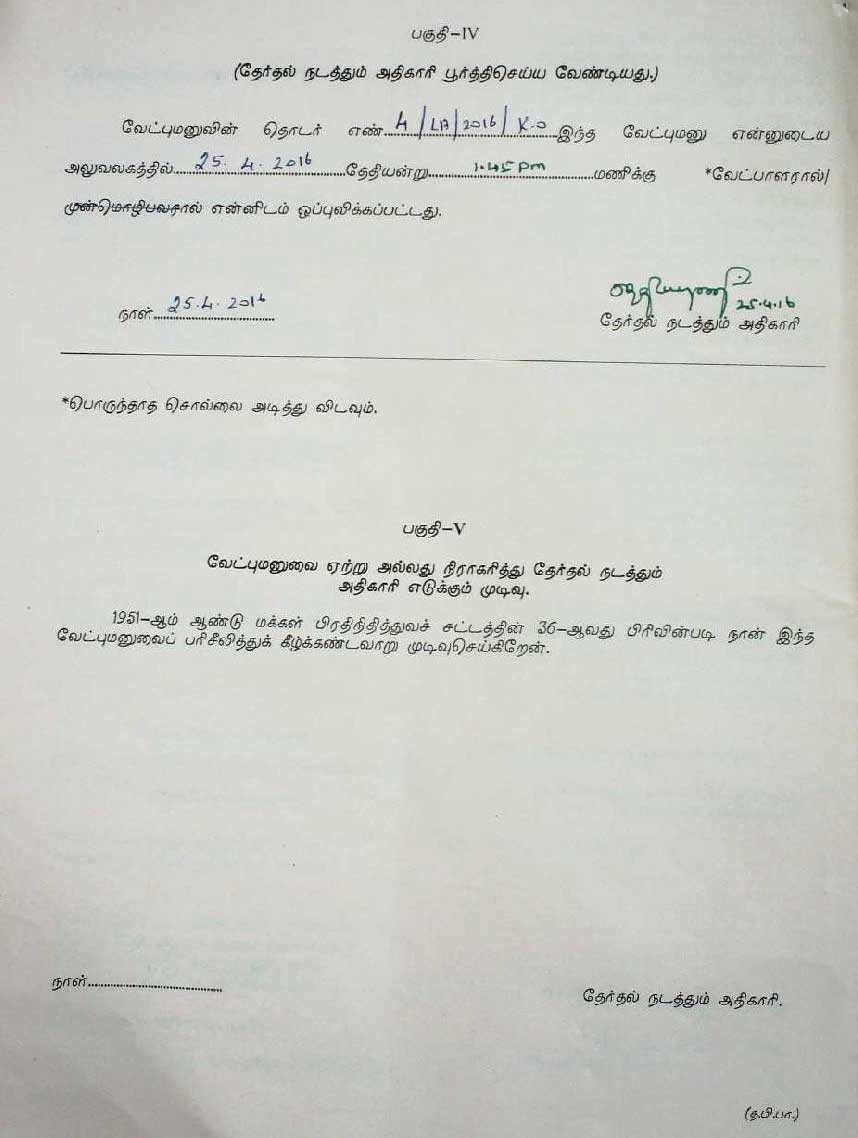 பகுதி-IV
(தேர்தல் நடத்தும் அதிகாரி பூர்த்திசெய்ய வேண்டியது.)
வேட்புமனுவின் தொடர் எண் 4/LA/2016/K.O இந்த வேட்புமனு என்னுடைய
அலுவலகத்தில் 25.4.2016 தேதியன்று 1.45 pm மணிக்கு *வேட்பாளரால்/
முன்மொழிபவரால் என்னிடம் ஒப்புவிக்கப்பட்டது.
நாள் 25.4.2016
25.4.16
தேர்தல் நடத்தும் அதிகாரி
*பொருந்தாத சொல்லை அடித்து விடவும்.
பகுதி-V
வேட்புமனுவை ஏற்று அல்லது நிராகரித்து தேர்தல் நடத்தும்
அதிகாரி எடுக்கும் முடிவு.
1951-ஆம் ஆண்டு மக்கள் பிரதிநிதித்துவச் சட்டத்தின் 36-ஆவது பிரிவின்படி நான் இந்த
வேட்புமனுவைப் பரிசீலித்துக் கீழ்க்கண்டவாறு முடிவுசெய்கிறேன்.
நாள்
தேர்தல் நடத்தும் அதிகாரி.
(த.பி.பா.)